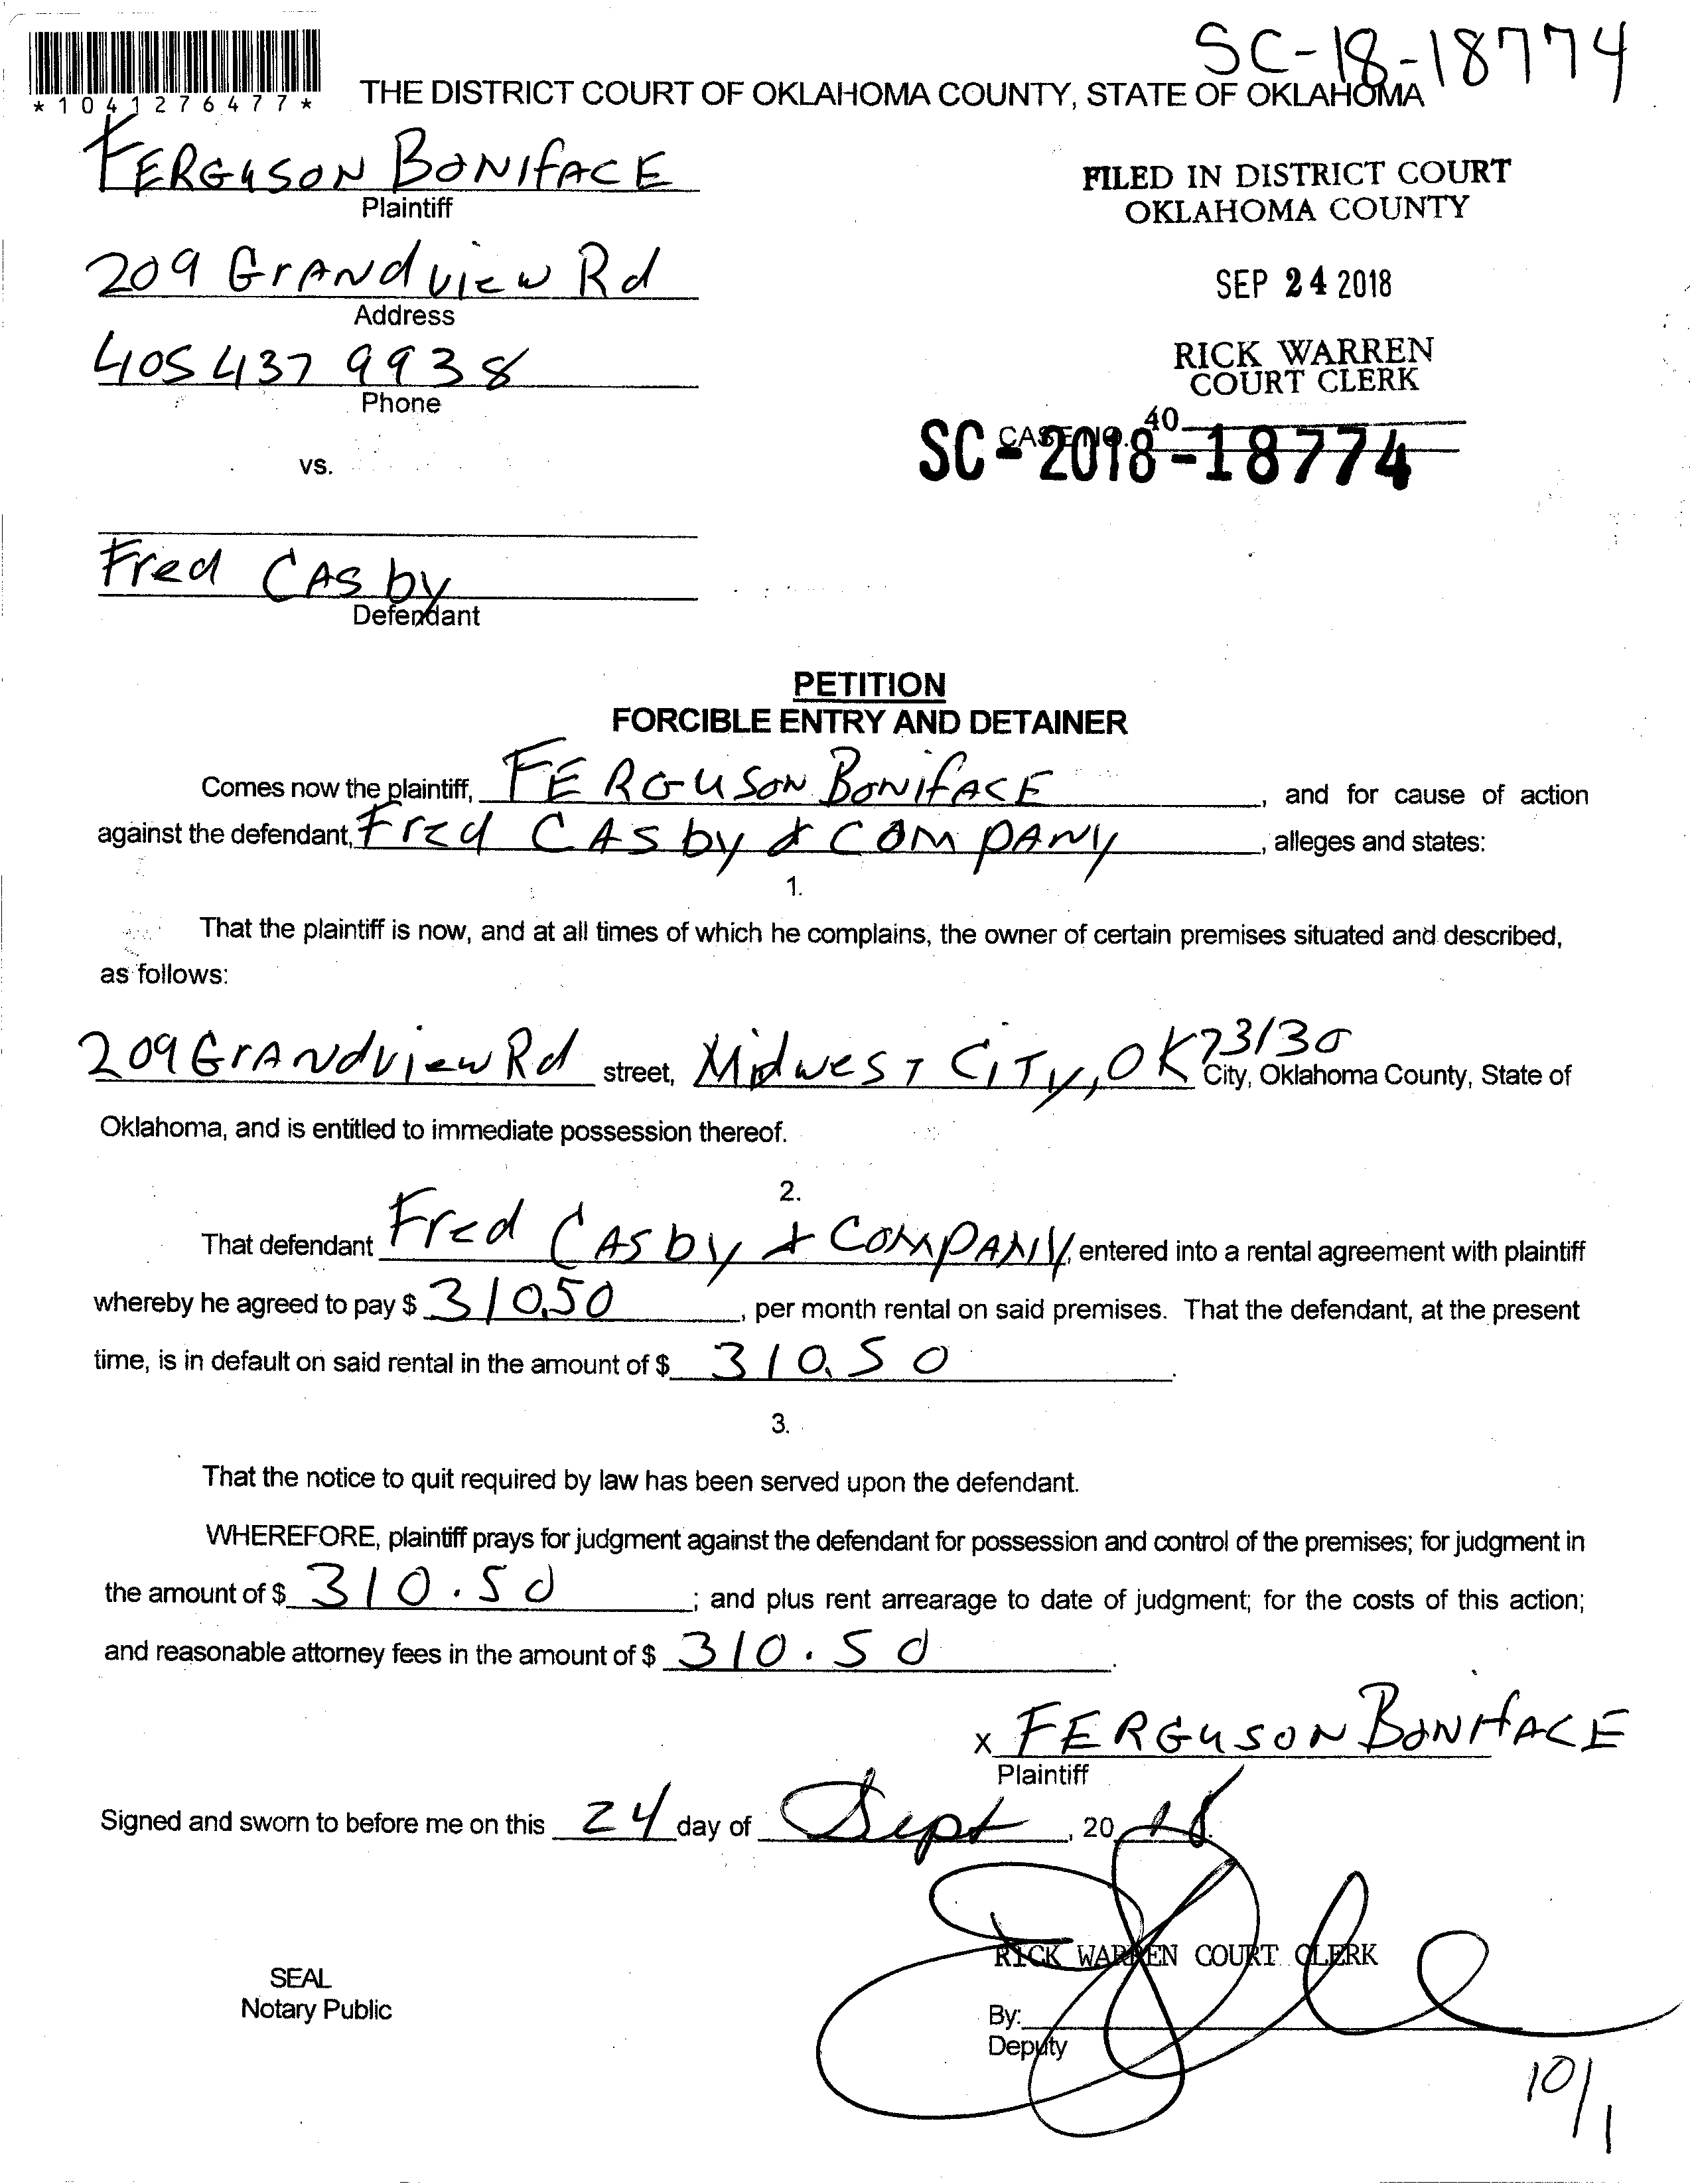 SC-18-18774
*1041276477*
THE DISTRICT COURT OF OKLAHOMA COUNTY, STATE OF OKLAHOMA
FERGUSON BONIFACE
Plaintiff
FILED IN DISTRICT COURT
OKLAHOMA COUNTY
209 GrANdview Rd
Address
SEP 24 2018
405 437 9938
Phone
RICK WARREN
COURT CLERK
40
CASE NO.
SC-2018-18774
vs.
Fred CASby
Defendant
PETITION
FORCIBLE ENTRY AND DETAINER
Comes now the plaintiff, FERGUSON BONIFACE, and for cause of action
against the defendant, Fred CASby & COMPANY, alleges and states:
1.
That the plaintiff is now, and at all times of which he complains, the owner of certain premises situated and described,
as follows:
209 GrANdview Rd street, Midwest City, OK 73130 City, Oklahoma County, State of
Oklahoma, and is entitled to immediate possession thereof.
2.
That defendant Fred CASby & COMPANY, entered into a rental agreement with plaintiff
whereby he agreed to pay $ 310.50, per month rental on said premises. That the defendant, at the present
time, is in default on said rental in the amount of $ 310.50.
3.
That the notice to quit required by law has been served upon the defendant.
WHEREFORE, plaintiff prays for judgment against the defendant for possession and control of the premises; for judgment in
the amount of $ 310.50; and plus rent arrearage to date of judgment; for the costs of this action;
and reasonable attorney fees in the amount of $ 310.50.
x FERGUSON BONIFACE
Plaintiff
Signed and sworn to before me on this 24 day of Sept, 2018.
RICK WARREN COURT CLERK
SEAL
Notary Public
By:
Deputy
10/1